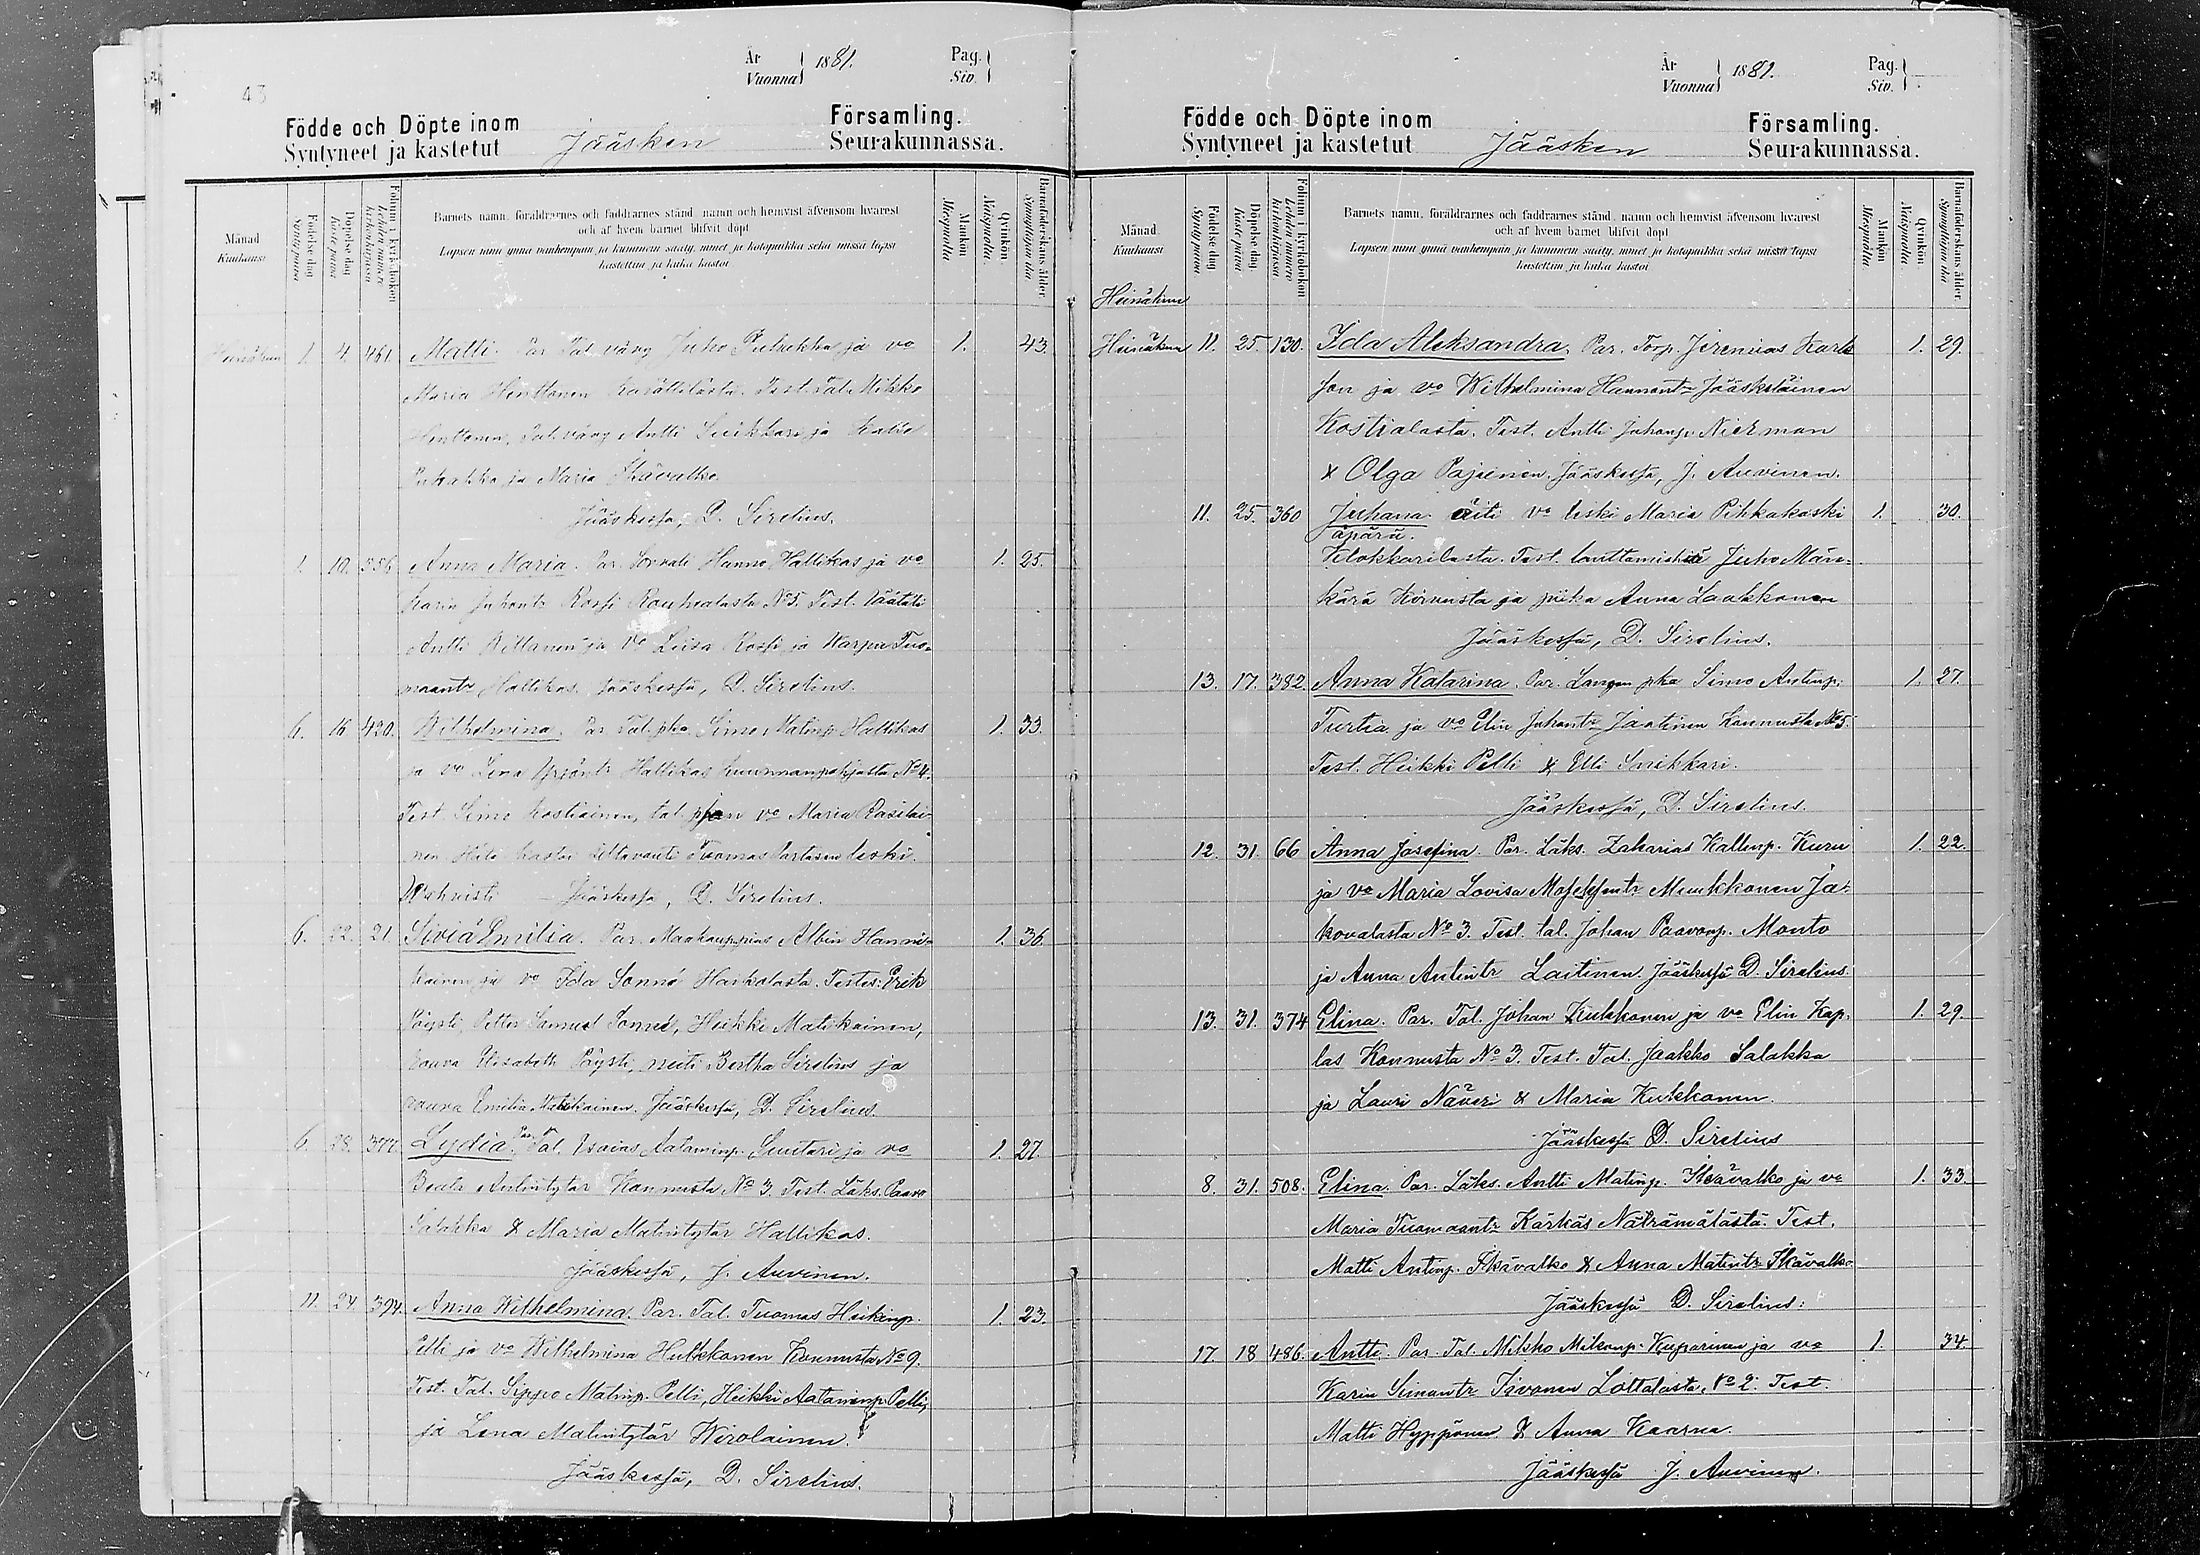 43
År
Vuonna 1881.
Pag.
Siv.
Födde och Döpte inom
Syntyneet ja kastetut
Jääsken
Församling.
Seurakunnassa.
Månad
Kuukausi
Födelse dag
Syntypäivä
Döpelse dag
Kaste päivä
Folium i kyrkoboken
Lehden numero kirkonkirjassa
Barnets namn, föräldrarnes och faddrarnes stånd, namn och hemvist äfvensom hvarest
och af hvem barnet blifvit döpt
Lapsen nimi ynnä vanhempain ja kummein sääty, nimet ja kotopaikka sekä missä lapsi
kastettiin ja kuka kastoi
Mankön
Miespuolia
Qvinkön
Naispuolia
Barnaföderskans ålder
Synnyttäjän ikä
Heinäkuu 1. 4. 461. Matti. Par. Tal. väng Juho Puhakka ja vo 1. 43.
Maria Henttonen Test. Tal. Mikko
Henttonen, Tal. väng Antti Suikkari ja
Puhakka ja Maria Skävalko.
Jääskessä, D. Sirelius.
1. 10. 356 Anna Maria. Par. Sorvali Hanno Hallikas ja vo 1. 25.
Karin Juhontr Rossi Rouhialasta No 5. Test.
Antti ja vo Liisa Rossi ja Warpu Tuo-
maantr Hallikas. Jääskessä, D. Sirelius.
6. 16 420. Wilhelmina. Par. Tal. pka. Simo Matinp. Hallikas 1. 33.
ja vo Lena Yrjöntr Hallikas No 4.
Test. Simo Kostiainen, tal. pojan vo Maria Rasilai-
nen. Hätä kastoi Tuomas Partasen leski.
Wahvisti Jääskessä, D. Sirelius.
6. 22. 21. Siviä Emilia. Par. Maakauppias Albin Hanni- 1. 36.
kainen ja vo Ida Sonné Haikolasta. Testes: Erik
Pöysti, Petter Samuel Sonné, Heikki Matikainen,
rouva Elisabeth Pöysti, neiti Bertha Sirelius ja
rouva Emilia Matikainen. Jääskessä, D. Sirelius
6. 28. 377. Lydia. Par. Tal. Esaias Aataminp. Suutari ja vo 1. 27.
Beata Antintytär Konnusta No 3. Test. Läks. Paavo
Salakka & Maria Matintytär Hallikas.
Jääskessä, J. Auvinen.
11. 24. 394. Anna Wilhelmina. Par. Tal. Tuomas Heikinp. 1. 23.
Pelli ja vo Wilhelmina Hulkkonen Konnusta No 9.
Test. Tal. Sippo Matinp. Pelli, Heikki Aataminp. Pelli,
ja Lena Matintytär Wirolainen.
Jääskessä, D. Sirelius.
År
Vuonna 1881.
Pag.
Siv.
Födde och Döpte inom
Syntyneet ja kastetut
Jääsken
Församling.
Seurakunnassa.
Månad
Kuukausi
Födelse dag
Syntypäivä
Döpelse dag
Kaste päivä
Folium i kyrkoboken
Lehden numero kirkonkirjassa
Barnets namn, föräldrarnes och faddrarnes stånd, namn och hemvist äfvensom hvarest
och af hvem barnet blifvit döpt
Lapsen nimi ynnä vanhempain ja kummein sääty, nimet ja kotopaikka sekä missä lapsi
kastettiin ja kuka kastoi
Mankön
Miespuolia
Qvinkön.
Naispuolia.
Barnaföderskans ålder.
Synnyttäjän ikä
Heinäkuu
Heinäkuu 11. 25. 130. Ida Aleksandra. Par. Torp. Jeremias Karls- 1. 29.
son ja vo Wilhelmina Hannantr Jääskeläinen
Kostialasta. Test. Antti Juhonp. Nierman
& Olga Pajunen. Jääskessä, J. Auvinen.
11. 25. 360 Juhana äiti vo leski Maria Pihkakoski 1. 30.
äpärä.
Klokkarilasta. Test. lauttamiehiä Juho Män-
kärä Kirvusta ja piika Anna Laakkonen
Jääskessä, D. Sirelius.
13. 17. 382. Anna Katarina. Par. Langon pka Simo Antinp. 1. 27.
Turtia ja vo Elin Juhontr Jaatinen Konnusta No 5
Test. Heikki Pelli & Elli Suikkari.
Jääskessä, D. Sirelius.
12. 31. 66 Anna Josefina. Par. Läks. Zakarias Kallenp. Kuru 1. 22.
ja vo Maria Lovisa Muukkonen Ja-
kovalasta No 3. Test. tal. Johan Paavonp. Monto
ja Anna Antintr Laitinen. Jääskessä D. Sirelius.
13. 31. 374 Elina. Par. Tal. Johan Kukkonen ja vo Elin Kap- 1. 29.
las Konnusta No 3. Test. Tal. Jaakko Salakka
ja Lauri Näveri & Maria Kukkonen.
Jääskessä D. Sirelius
8. 31. 508. Elina. Par. Läks. Antti Matinp. Skävalko ja vo 1. 33
Maria Tuomaantr Kärkäs Näträmälästä. Test.
Matti Antinp. Skävalko & Anna Matintr Skävalko
Jääskessä D. Sirelius.
17. 18 486. Antti. Par. Tal. Mikko Mikonp. Kuparinen ja vo 1. 34.
Karin Simontr Iivonen Lottolasta No 2. Test.
Matti Hyppönen & Anna Kaarna.
Jääskessä J. Auvinen.